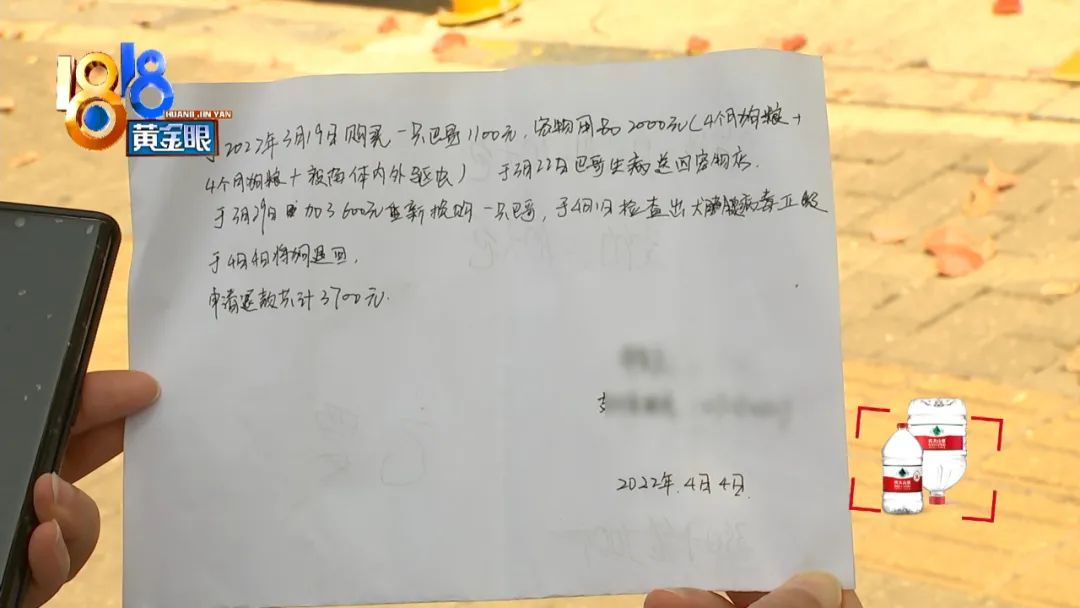 1818
HUANG JIN YAN
黄金眼
于2022年3月19日购买一只巴哥1100元，宠物用品2000元（4个月狗粮+
4个月狗粮+疫苗体内外驱虫） 于3月22日巴哥生病送回宠物店.
于3月29日 加了600元重新换购一只巴哥，于4月1日检查出犬胰腺病毒正级
于4月4日将狗退回，
申请退款共计3700元.
支
2022年.4月4日.
农夫山泉
农夫山泉